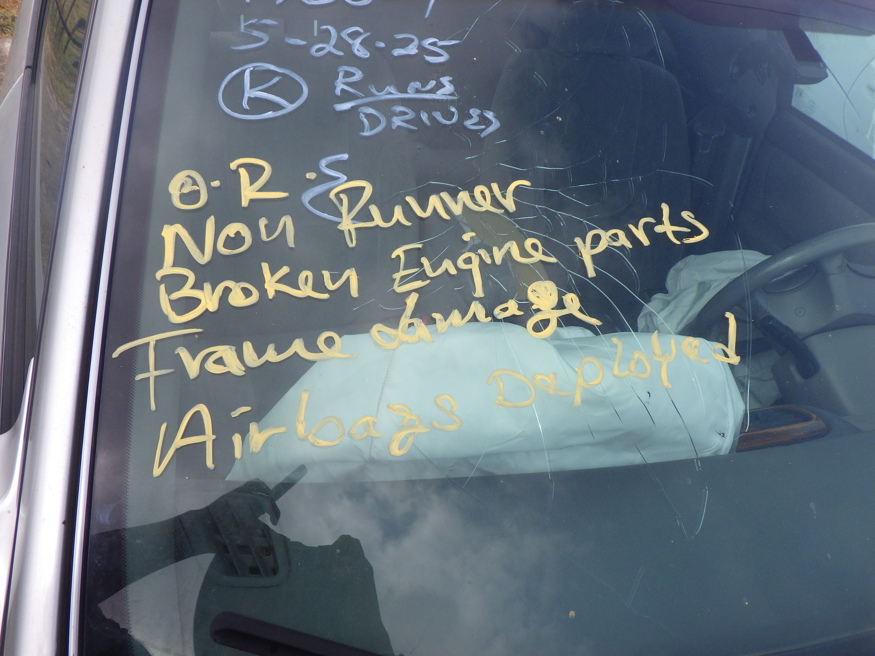 5-28-25
K Runs
DRIVES
O.R. &
Non Runner
Broken Engine parts
Frame damage
Airbags Deployed